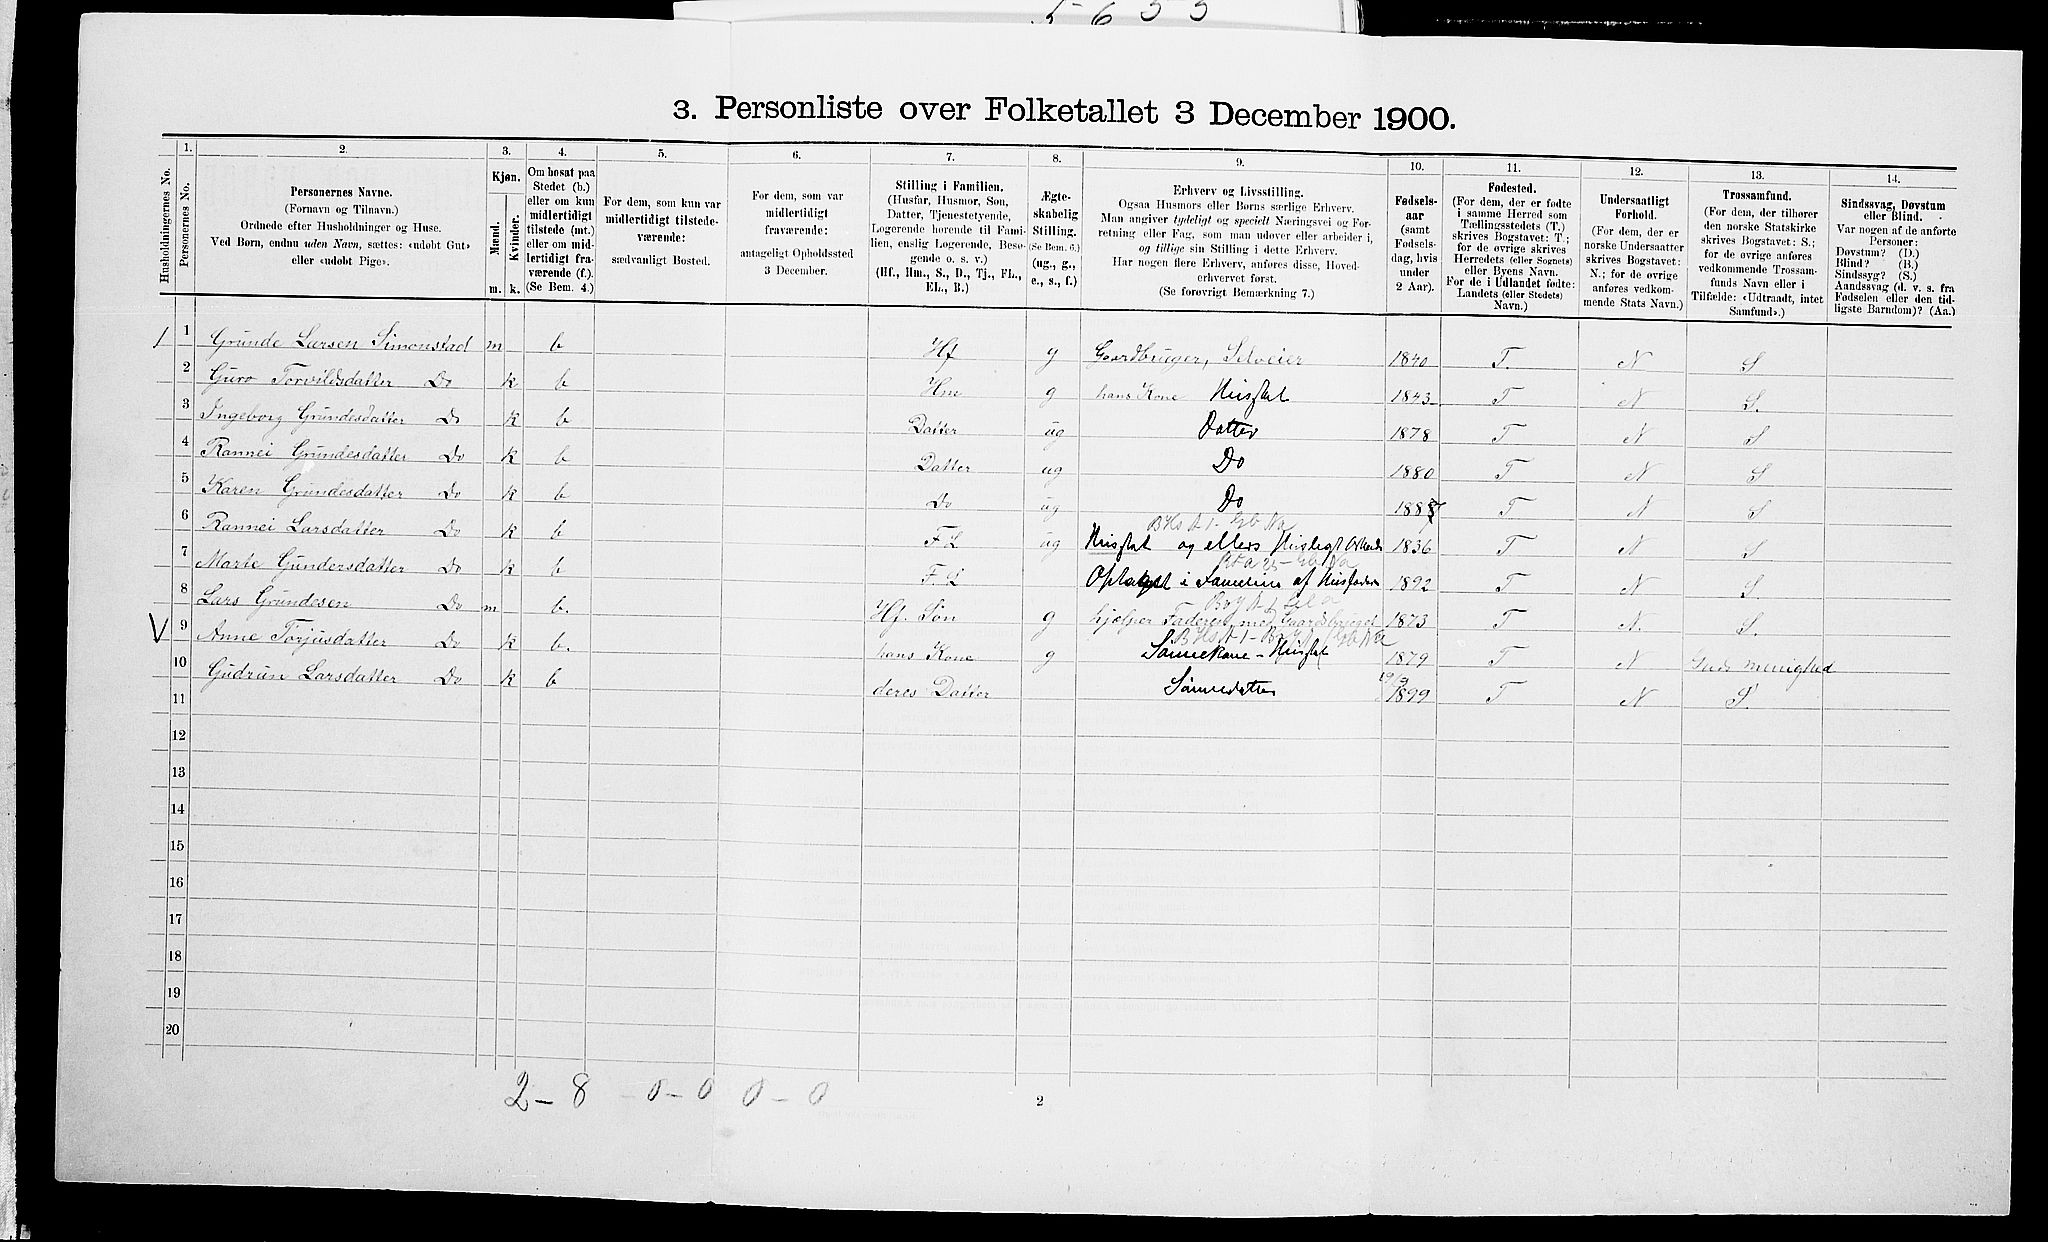 5655
3. Personliste over Folketallet 3 December 1900.
Husholdningernes No.
1.
Personernes No.
2.
Personernes Navne.
(Fornavn og Tilnavn.)
Ordnede efter Husholdninger og Huse.
Ved Børn, endnu uden Navn, sættes: «udøbt Gut»
eller «udøbt Pige».
3.
Kjøn.
Mænd.
Kvinder.
m. k.
4.
Om bosat paa
Stedet (b.)
eller om kun
midlertidigt
tilstede (mt.)
eller om mid-
lertidigt fra-
værende (f.).
(Se Bem. 4.)
5.
For dem, som kun var
midlertidigt tilstede-
værende:
sædvanligt Bosted.
6.
For dem, som var
midlertidigt
fraværende:
antageligt Opholdssted
3 December.
7.
Stilling i Familien.
(Husfar, Husmor, Søn,
Datter, Tjenestetyende,
Logerende hørende til Fami-
lien, enslig Logerende, Besø-
gende o. s. v.)
(Hf., Hm., S., D., Tj., FL.,
EL., B.)
8.
Ægte-
skabelig
Stilling.
(Se Bem. 6.)
(ug., g.,
e., s., f.)
9.
Erhverv og Livsstilling.
Ogsaa Husmors eller Børns særlige Erhverv.
Man angiver tydeligt og specielt Næringsvei og For-
retning eller Fag, som man udøver eller arbeider i,
og tillige sin Stilling i dette Erhverv.
Har nogen flere Erhverv, anføres disse, Hoved-
erhvervet først.
(Se forøvrigt Bemærkning 7.)
10.
Fødsels-
aar
(samt
Fødsels-
dag, hvis
under
2 Aar).
11.
Fødested.
(For dem, der er fødte
i samme Herred som
Tællingsstedets (T.)
skrives Bogstavet: T.;
for de øvrige skrives
Herredets (eller Sognets)
eller Byens Navn.
For de i Udlandet fødte:
Landets (eller Stedets)
Navn.)
12.
Undersaatligt
Forhold.
(For dem, der er
norske Undersaatter
skrives Bogstavet:
N.; for de øvrige
anføres vedkom-
mende Stats Navn.)
13.
Trossamfund.
(For dem, der tilhører
den norske Statskirke
skrives Bogstavet: S.;
for de øvrige anføres
vedkommende Trossam-
funds Navn eller i
Tilfælde: «Udtraadt, intet
Samfund».)
14.
Sindssvag, Døvstum
eller Blind.
Var nogen af de anførte
Personer:
Døvstum? (D.)
Blind? (B.)
Sindssyg? (S.)
Aandssvag (d. v. s. fra
Fødselen eller den tid-
ligste Barndom)? (Aa.)
1 Grunde Larsen Simonstad m b Hf g Gaardbruger, Selveier 1840 T. N S
2 Guro Torvildsdatter Do k b Hm g hans Kone Husstel 1843 T N S.
3 Ingeborg Grundesdatter Do k b Datter ug Datter 1878 T N S
4 Rannei Grundesdatter Do k b Datter ug Do 1880 T N S
5 Karen Grundesdatter Do k b Do ug Do T N S
6 Rannei Larsdatter Do k b FL ug Husstel og ellers Husligt Arbeide 1836 T N S
7 Marte Gundersdatter Do k b F.L Optaget i Familien af Husfaderen 1892 T N S
8 Lars Grundesen Do m b. Hf. Søn g hjælper Faderen med Gaardsbruget 1873 T N. S.
V 9 Anne Torjusdatter Do k b. hans Kone g Sønnekone - Husstel 1879 T N Guds menighed
10 Gudrun Larsdatter Do k b deres Datter Sønnedatter 1899 T N S.
11
12
13
14
15
16
17
18
19
20
2 - 8 0 - 0 0 - 0
2